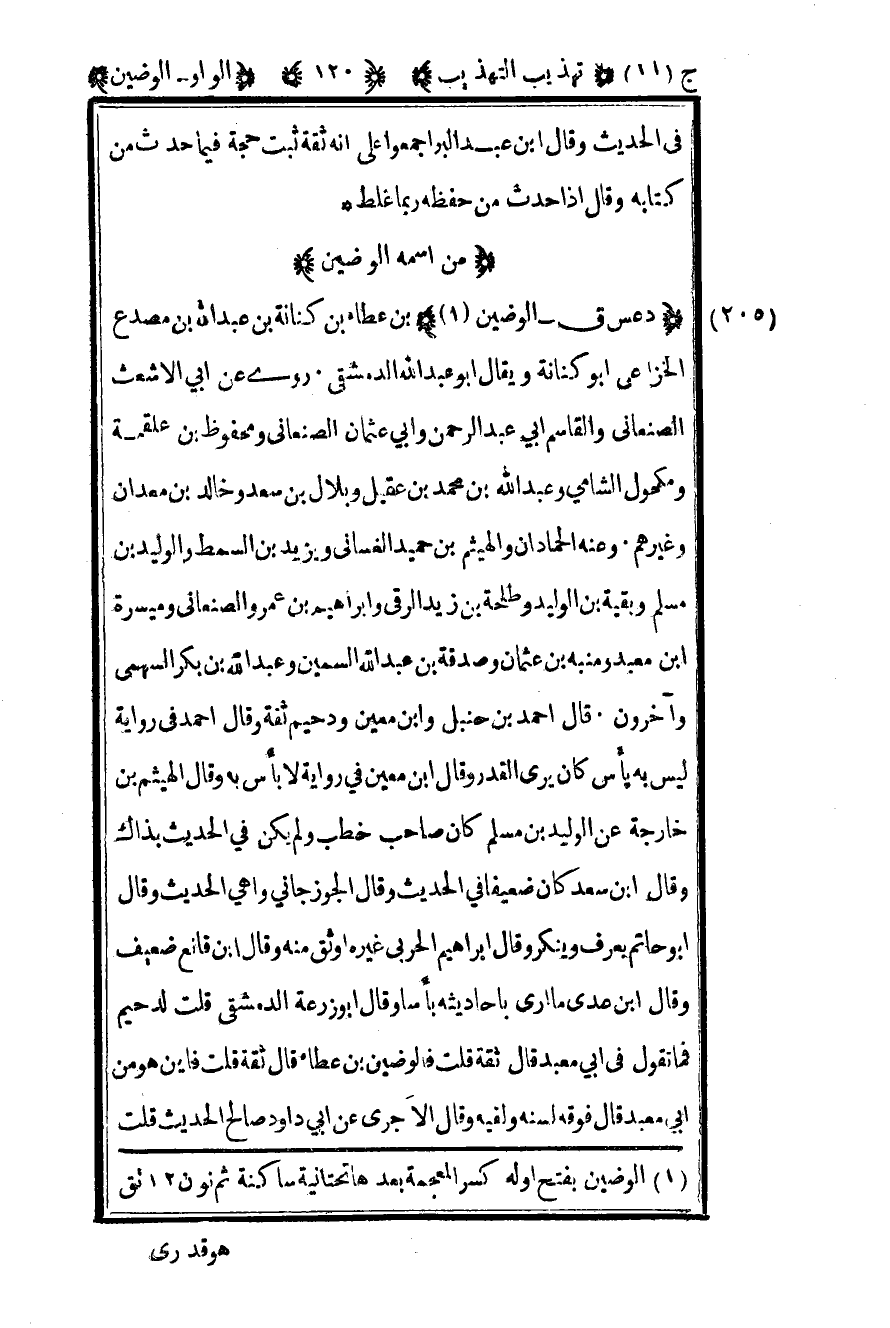 ج (١١) ﴿ تهذيب التهذيب ﴾ ﴿ ١٢٠ ﴾ ﴿ الواو ـ الوضين ﴾
فى الحديث وقال ابن عبد البر اجمعوا على انه ثقة ثبت حجة فيما حدث من
كتابه وقال اذا حدث من حفظه ربما غلط *
﴿ من اسمه الوضين ﴾
(٢٠٥) ﴿ د عس ق ـ الوضين (١) ﴾ بن عطاء بن كنانة بن عبدالله بن مصدع
الخزاعى ابو كنانة ويقال ابو عبدالله الدمشقى . روے عن ابي الاشعث
الصنعانى والقاسم ابي عبدالرحمن وابي عثمان الصنعانى ومحفوظ بن علقمة
ومكحول الشامي وعبدالله بن محمد بن عقيل وبلال بن سعد وخالد بن معدان
وغيرهم . وعنه الحمادان والهيثم بن حميد الغسانى ويزيد بن السمط والوليد بن
مسلم وبقية بن الوليد وطلحة بن زيد الرقى وابراهيم بن عمرو الصنعانى وميسرة
ابن معبد ومنبه بن عثمان وصدقة بن عبدالله السمين وعبدالله بن بكر السهمى
وآخرون . قال احمد بن حنبل وابن معين ودحيم ثقة وقال احمد فى رواية
ليس به بأس كان يرى القدر وقال ابن معين في رواية لا بأس به وقال الهيثم بن
خارجة عن الوليد بن مسلم كان صاحب خطب ولم يكن في الحديث بذاك
وقال ابن سعد كان ضعيفا في الحديث وقال الجوزجاني واهي الحديث وقال
ابو حاتم يعرف وينكر وقال ابراهيم الحربى غيره اوثق منه وقال ابن قانع ضعيف
وقال ابن عدى ما ارى باحاديثه بأسا وقال ابو زرعة الدمشقى قلت لدحيم
فما تقول فى ابي معبد قال ثقة قلت فالوضين بن عطاء قال ثقة قلت فاين هو من
ابي معبد قال فوقه لسنه ولقيه وقال الآجرى عن ابي داود صالح الحديث قلت
(١) الوضين بفتح اوله كسر المعجمة بعدها تحتانية ساكنة ثم نون ١٢ تق
هو قدرى